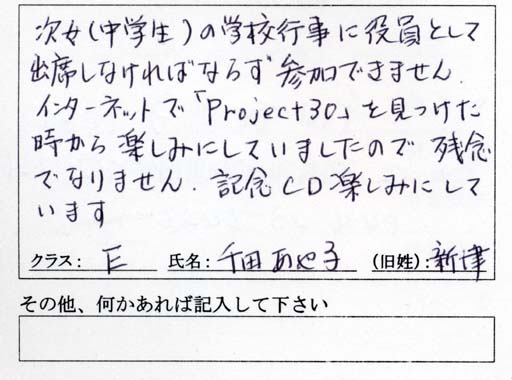 次女(中学生)の学校行事に役員として
出席しなければならず参加できません.
インターネットで「Project30」を見つけた
時から楽しみにしていましたので残念
でなりません. 記念CD楽しみにして
います
クラス: E 氏名: 千田あや子 (旧姓): 新津
その他、何かあれば記入して下さい